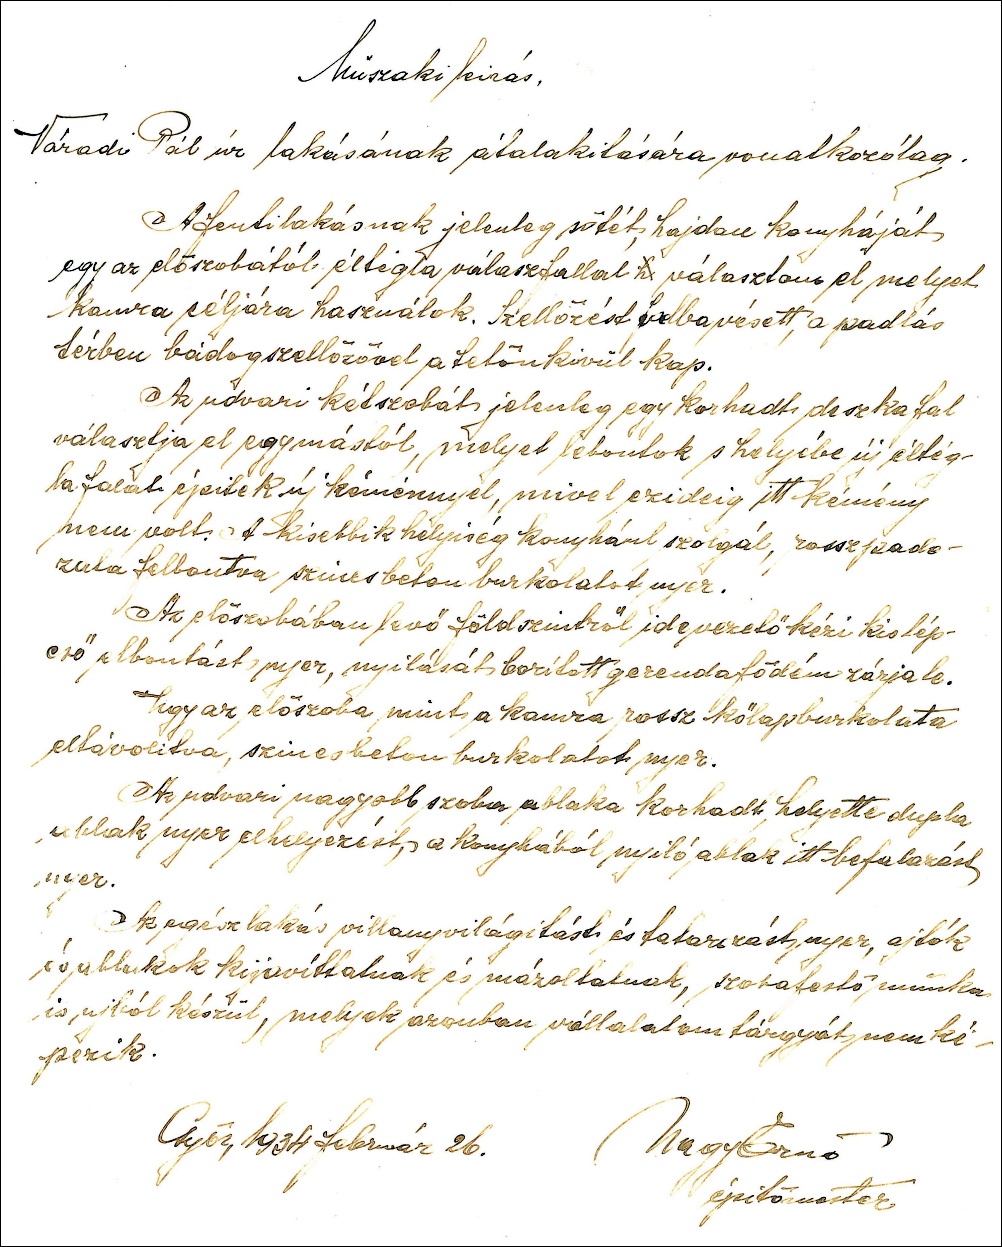 Műszaki leirás.
Váradi Pál úr lakásának átalakitására vonatkozólag.
A fenti lakásnak jelenleg sötét, hajdan konyháját
egy az előszobától éltégla válaszfallal választom el melyet
kamra céljára használok. Szellőzést falba vésett, a padlás
térben bádogszellőzővel a tetőn kivül kap.
Az udvari két szobát jelenleg egy korhadt deszka fal
választja el egymástól, melyet lebontok s helyébe új éltég-
la falat épitek új kéménnyel, mivel ezideig itt kémény
nem volt. A kisebbik helyiség konyhául szolgál, rossz pado-
zata felbontva szines beton burkolatot nyer.
Az előszobában levő földszintről idevezető kézi kis lép-
cső elbontást nyer, nyilását borított gerendafödém zárja le.
Ugy az előszoba, mint a kamra rossz kőlapburkolata
eltávolitva, szines beton burkolatot nyer.
Az udvari nagyobb szoba ablaka korhadt, helyette dupla
ablak nyer elhelyezést, a konyhából nyiló ablak itt befalazást
nyer.
Az egész lakás villanyvilágitást és tatarozást nyer, ajtók
és ablakok kijavíttatnak és mázoltatnak, szobafestő munka
is ujból készül, melyek azonban vállalatom tárgyát nem ké-
pezik.
Győr, 1934 február 26.
Nagy Ernő
épitőmester